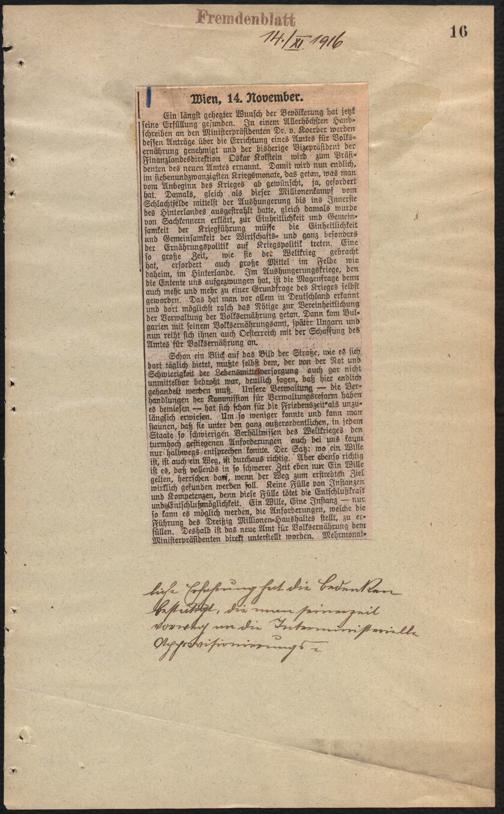 Fremdenblatt
14./XI 1916
16
Wien, 14. November.
Ein längst gehegter Wunsch der Bevölkerung hat jetzt
seine Erfüllung gefunden. In einem Allerhöchsten Hand-
schreiben an den Ministerpräsidenten Dr. v. Koerber werden
dessen Anträge über die Errichtung eines Amtes für Volks-
ernährung genehmigt und der bisherige Vizepräsident der
Finanzlandesdirektion Oskar Kokstein wird zum Präsi-
denten des neuen Amtes ernannt. Damit wird nun endlich,
im siebenundzwanzigsten Kriegsmonate, das getan, was man
vom Anbeginn des Krieges ab gewünscht, ja, gefordert
hat. Damals, gleich als dieser Millionenkampf vom
Schlachtfelde mittelst der Aushungerung bis ins Innerste
des Hinterlandes ausgestrahlt hatte, gleich damals wurde
von Sachkennern erklärt, zur Einheitlichkeit und Gemein-
samkeit der Kriegführung müsse die Einheitlichkeit
und Gemeinsamkeit der Wirtschafts- und ganz besonders
der Ernährungspolitik auf Kriegspolitik treten. Eine
so große Zeit, wie sie der Weltkrieg gebracht
hat, erfordert auch große Mittel im Felde wie
daheim, im Hinterlande. Im Aushungerungskriege, den
die Entente uns aufgezwungen hat, ist die Magenfrage denn
auch mehr und mehr zu einer Grundfrage des Krieges selbst
geworden. Das hat man vor allem in Deutschland erkannt
und dort möglichst rasch das Nötige zur Vereinheitlichung
der Verwaltung der Volksernährung getan. Dann kam Bul-
garien mit seinem Volksernährungsamt, später Ungarn und
nun reiht sich ihnen auch Oesterreich mit der Schaffung des
Amtes für Volksernährung an.
Schon ein Blick auf das Bild der Straße, wie es sich
dort täglich bietet, mußte selbst dem, der von der Not und
Schwierigkeit der Lebensmittelversorgung auch gar nicht
unmittelbar bedroht war, deutlich sagen, daß hier endlich
gehandelt werden muß. Unsere Verwaltung — die Ver-
handlungen der Kommission für Verwaltungsreform haben
es bewiesen — hat sich schon für die Friedenszeit als unzu-
länglich erwiesen. Um so weniger konnte und kann man
staunen, daß sie unter den ganz außerordentlichen, in jedem
Staate so schwierigen Verhältnissen des Weltkrieges den
turmhoch gestiegenen Anforderungen auch bei uns kaum
nur halbwegs entsprechen konnte. Der Satz: wo ein Wille
ist, ist auch ein Weg, ist durchaus richtig. Aber ebenso richtig
ist es, daß vollends in so schwerer Zeit eben nur Ein Wille
gelten, herrschen darf, wenn der Weg zum erstrebten Ziel
wirklich gefunden werden soll. Keine Fülle von Instanzen
und Kompetenzen, denn diese Fülle tötet die Entschlußkraft
und Entschlußmöglichkeit. Ein Wille, Eine Instanz — nur
so kann es möglich werden, die Anforderungen, welche die
Führung des Dreißig Millionen-Haushaltes stellt, zu er-
füllen. Deshalb ist das neue Amt für Volksernährung dem
Ministerpräsidenten direkt unterstellt worden. Mehrmonat-
liche Erfahrung hat die Bedenken
bestätigt, die man seinerzeit
vorweg an die Interministerielle
Approvisionierungs-